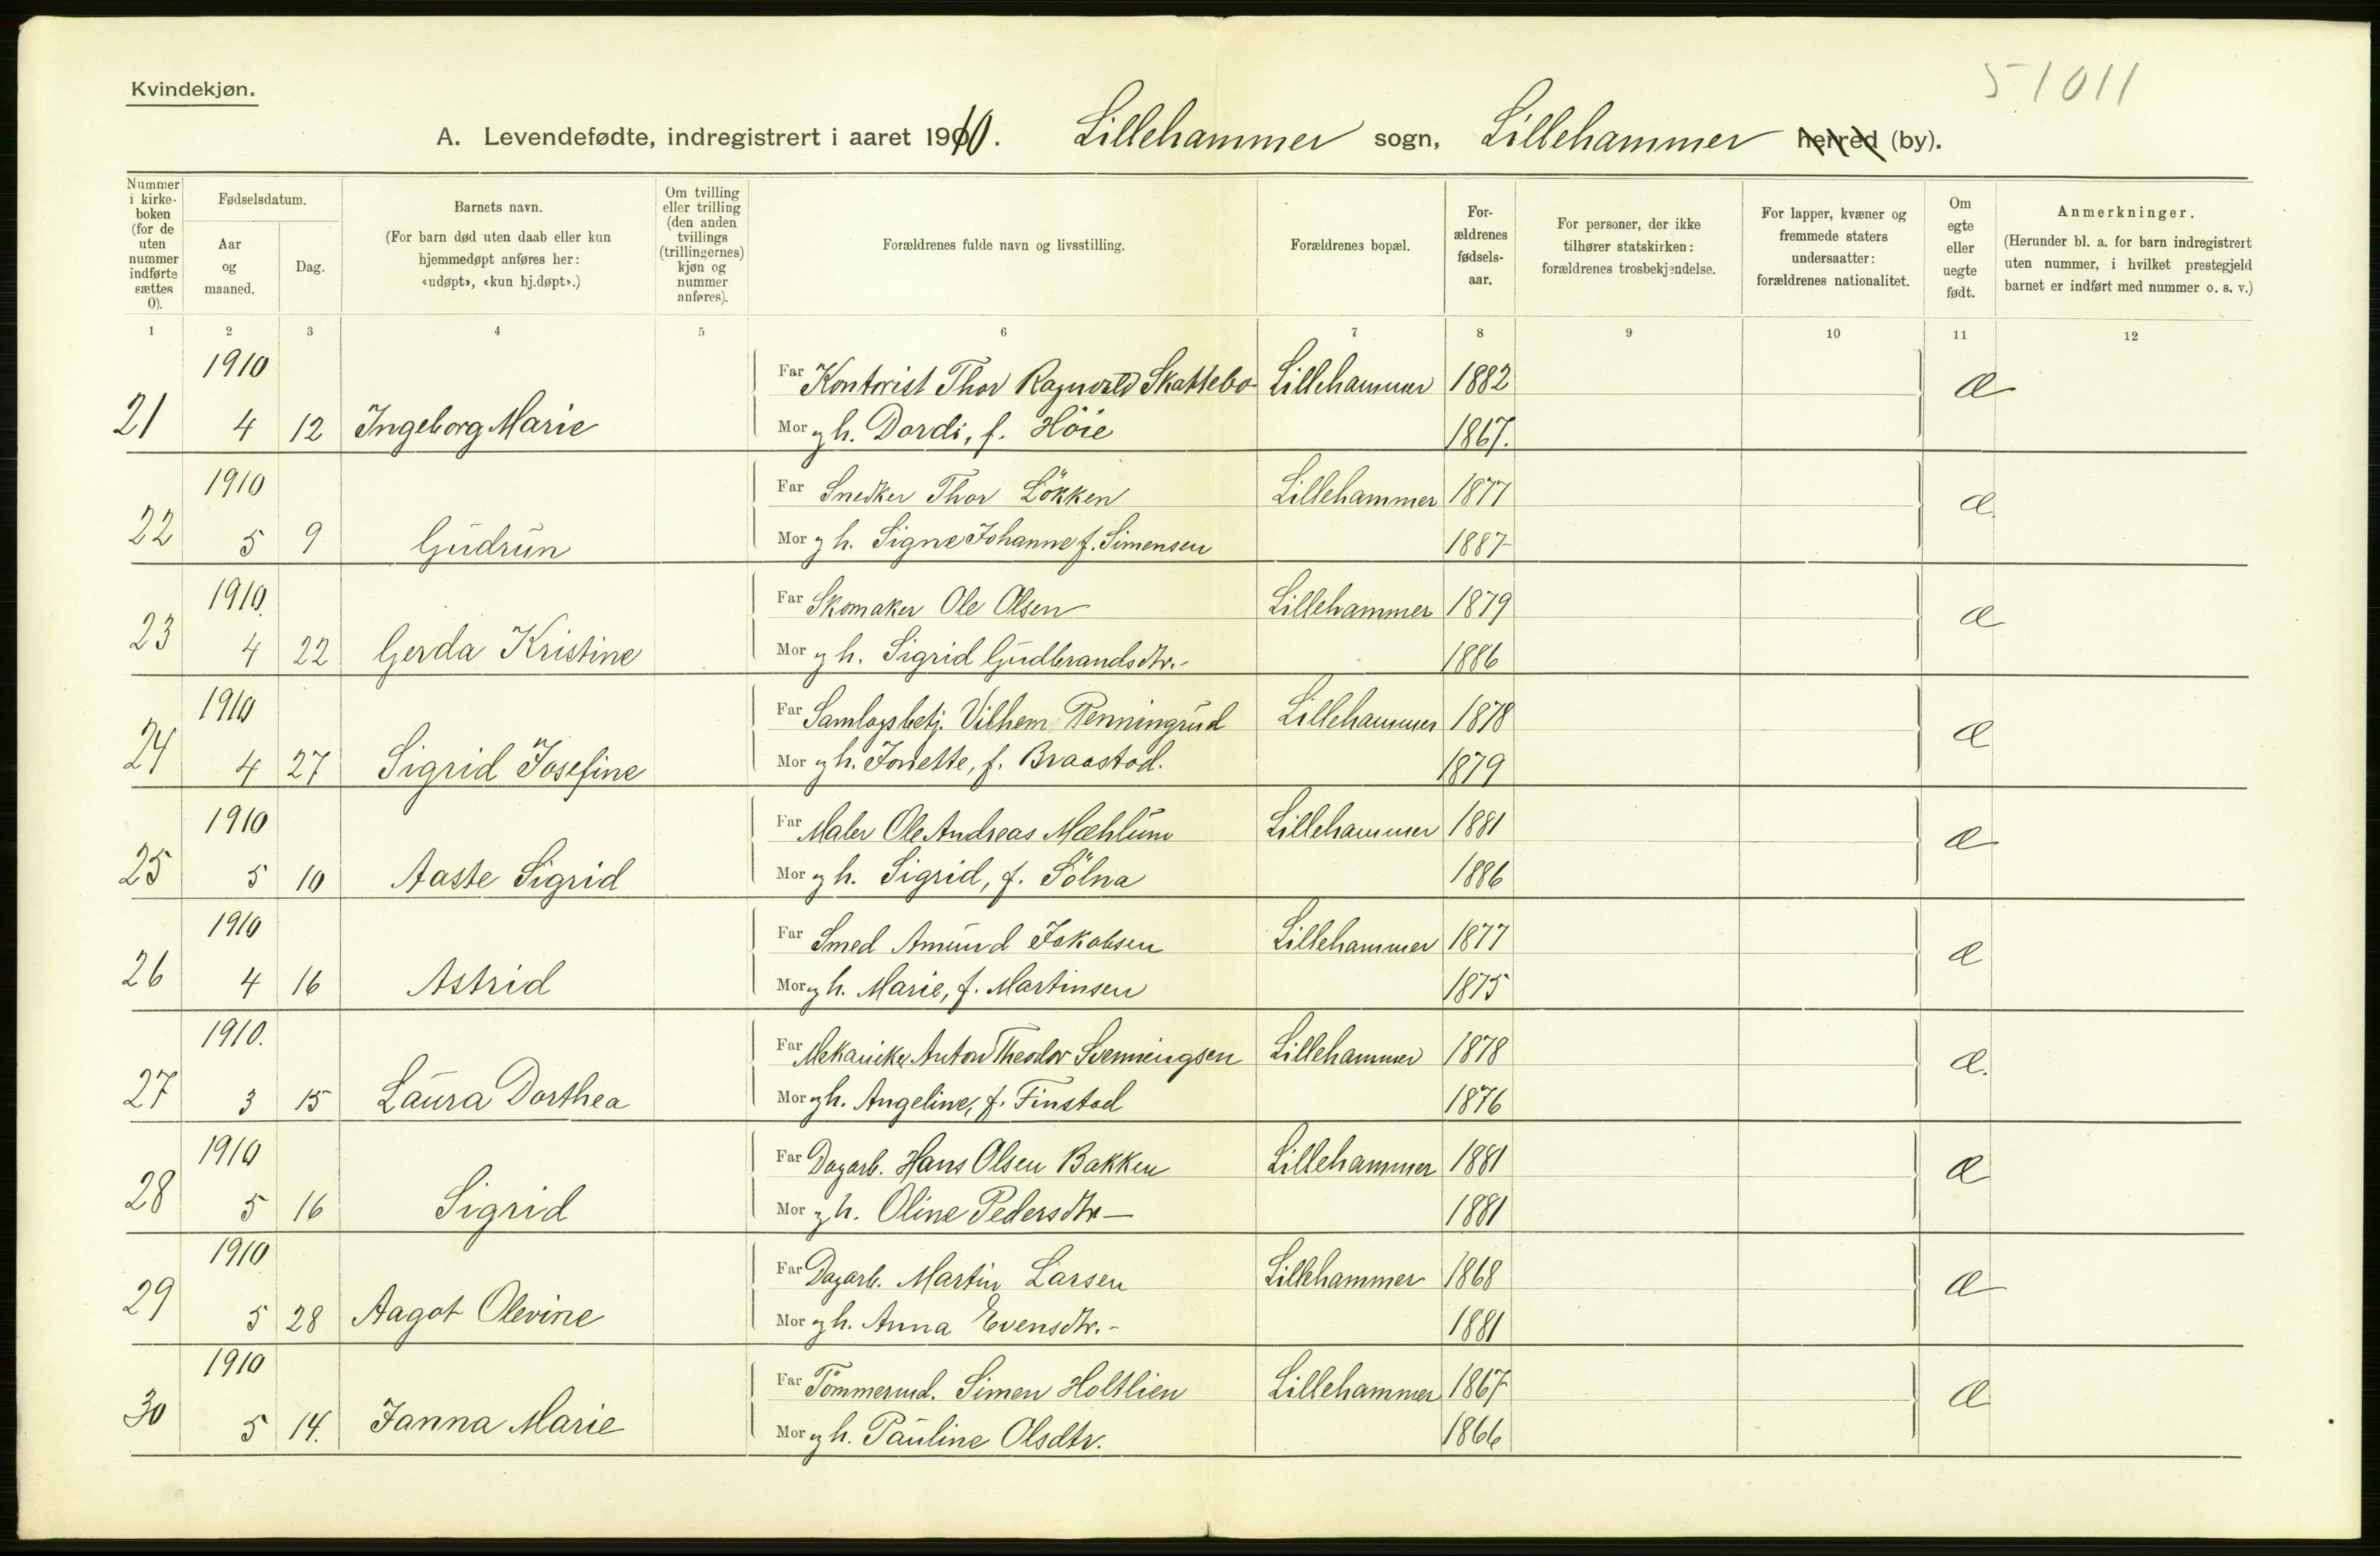 Kvindekjøn.
51011
A. Levendefødte, indregistrert i aaret 1910. Lillehammer sogn, Lillehammer herred (by).
Nummer i kirke- boken (for de uten nummer indførte sættes 0).
Fødselsdatum.
Aar og maaned.
Dag.
Barnets navn.
(For barn død uten daab eller kun hjemmedøpt anføres her: «udøpt», «kun hj.døpt».)
Om tvilling eller trilling (den anden tvillings (trillingernes) kjøn og nummer anføres).
Forældrenes fulde navn og livsstilling.
Forældrenes bopæl.
For- ældrenes fødsels- aar.
For personer, der ikke tilhører statskirken: forældrenes trosbekjendelse.
For lapper, kvæner og fremmede staters undersaatter: forældrenes nationalitet.
Om egte eller uegte født.
Anmerkninger.
(Herunder bl. a. for barn indregistrert uten nummer, i hvilket prestegjeld barnet er indført med nummer o. s. v.)
1 2 3 4 5 6 7 8 9 10 11 12
1910 Far Kontorist Thor Ragnvald Skattebo Lillehammer 1882 æ
21 4 12 Ingeborg Marie Mor og h. Dordi, f. Höie 1867.
1910 Far Snedker Thor Lökken Lillehammer 1877 æ.
22 5 9 Gudrun Mor og h. Signe Johanne f. Simensen 1887
1910. Far Skomaker Ole Olsen Lillehammer 1879 æ
23 4 22 Gerda Kristine Mor og h. Sigrid Gudbrandsdtr.- 1886
1910 Far Samlagsbetj. Vilhem Penningrud Lillehammer 1878 æ
24 4 27 Sigrid Josefine Mor og h. Jonette, f. Braastad. 1879
1910 Far Maler Ole Andreas Mæhlum Lillehammer 1881 æ
25 5 10 Aaste Sigrid Mor og h. Sigrid, f. Sölna 1886
1910 Far Smed Amund Jakobsen Lillehammer 1877 æ
26 4 16 Astrid Mor og h. Marie, f. Martinsen 1875
1910. Far Mekaniker Anton Theodor Svenningsen Lillehammer 1878 æ.
27 3 15 Laura Dorthea Mor og h. Angeline, f. Finstad 1876
1910 Far Dagarb. Hans Olsen Bakken Lillehammer 1881 æ
28 5 16 Sigrid Mor og h. Oline Pedersdtr— 1881
1910 Far Dagarb. Martin Larsen Lillehammer 1868 æ
29 5 28 Aagot Olevine Mor og h. Anna Evensdtr.- 1881
1910 Far Tömmermd. Simen Holtlien Lillehammer 1867 æ
30 5 14. Janna Marie Mor og h. Pauline Olsdtr. 1866